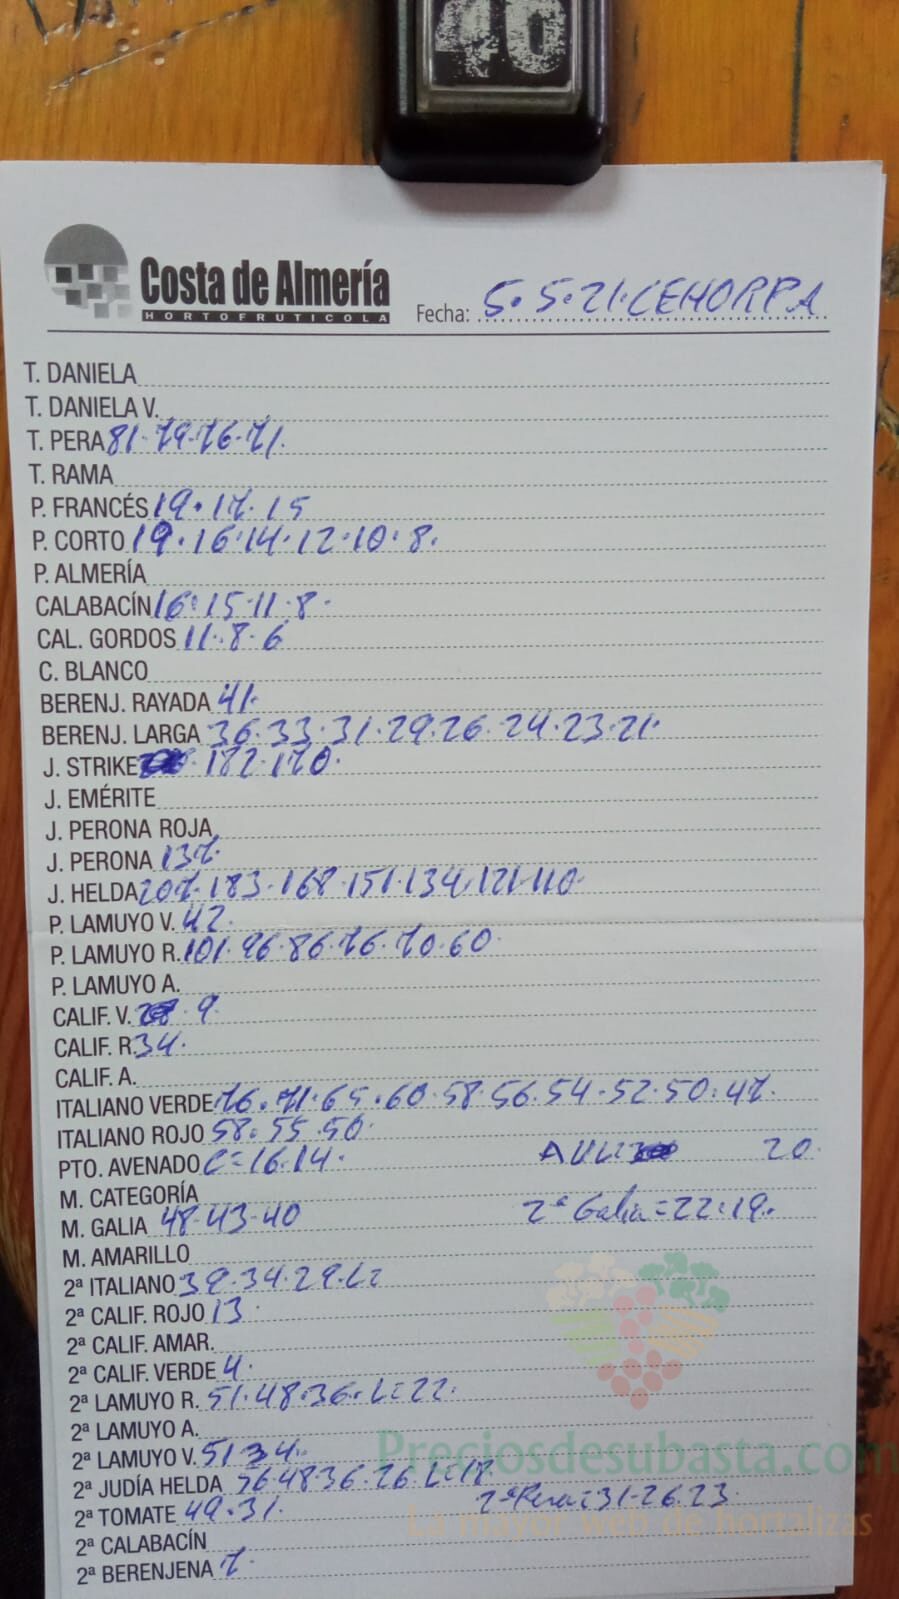 40
Costa de Almería
HORTOFRUTICOLA
Fecha: 5.5.21.CEHORPA
T. DANIELA
T. DANIELA V.
T. PERA 81.79.76.71.
T. RAMA
P. FRANCÉS 19.17.15
P. CORTO 19.16.14.12.10.8.
P. ALMERÍA
CALABACÍN 16.15.11.8.
CAL. GORDOS 11.8.6
C. BLANCO
BERENJ. RAYADA 41.
BERENJ. LARGA 36.33.31.29.26.24.23.21.
J. STRIKE 182.170.
J. EMÉRITE
J. PERONA ROJA
J. PERONA 137.
J. HELDA 207.183.168.151.134.121.110.
P. LAMUYO V. 42.
P. LAMUYO R. 101.96.86.76.70.60.
P. LAMUYO A.
CALIF. V. 9.
CALIF. R. 34.
CALIF. A.
ITALIANO VERDE 76.71.65.60.58.56.54.52.50.47.
ITALIANO ROJO 58.55.50.
PTO. AVENADO C=16.14. 20.
M. CATEGORÍA
M. GALIA 48.43.40 2ª Galia=22.19.
M. AMARILLO
2ª ITALIANO 39.34.29.L=
2ª CALIF. ROJO 13.
2ª CALIF. AMAR.
2ª CALIF. VERDE 4.
2ª LAMUYO R. 51.48.36.L=22.
2ª LAMUYO A.
2ª LAMUYO V. 51 34.
Preciosdesubasta.com
2ª JUDÍA HELDA 56.48 36.26.L=18.
2ª TOMATE 49.31. 2ª Pera=31-26.23.
La mayor web de hortalizas
2ª CALABACÍN
2ª BERENJENA 7.